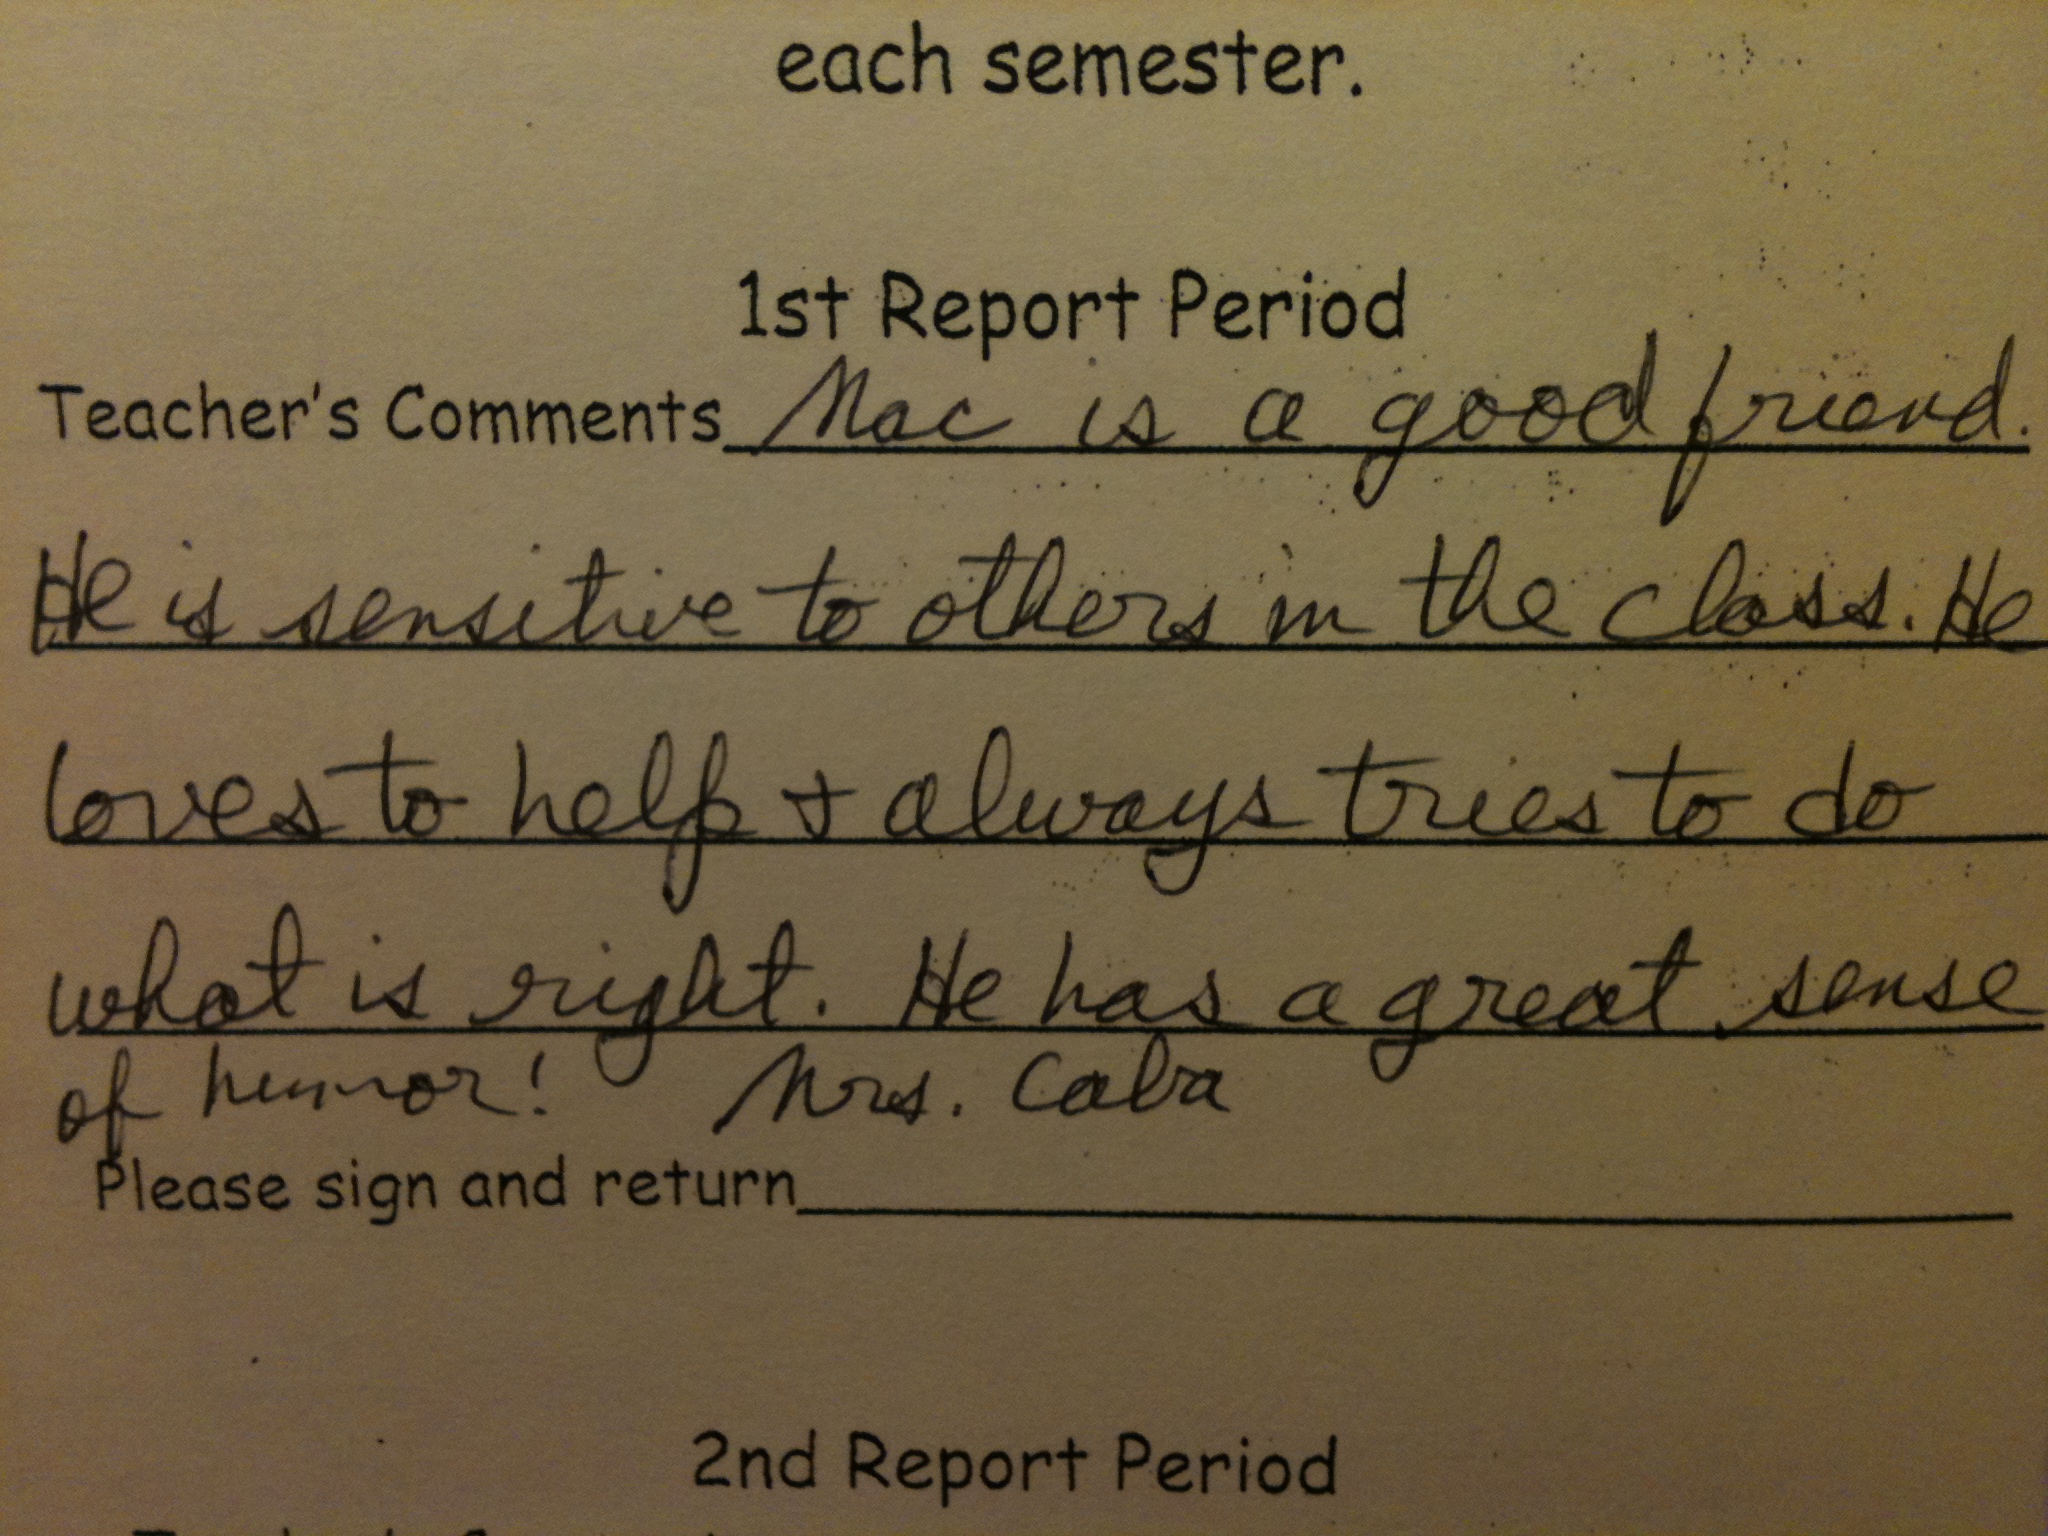 each semester.
1st Report Period
Teacher's Comments Mac is a good friend.
He is sensitive to others in the class. He
loves to help + always tries to do
what is right. He has a great sense
of humor! Mrs. Caba
Please sign and return
2nd Report Period